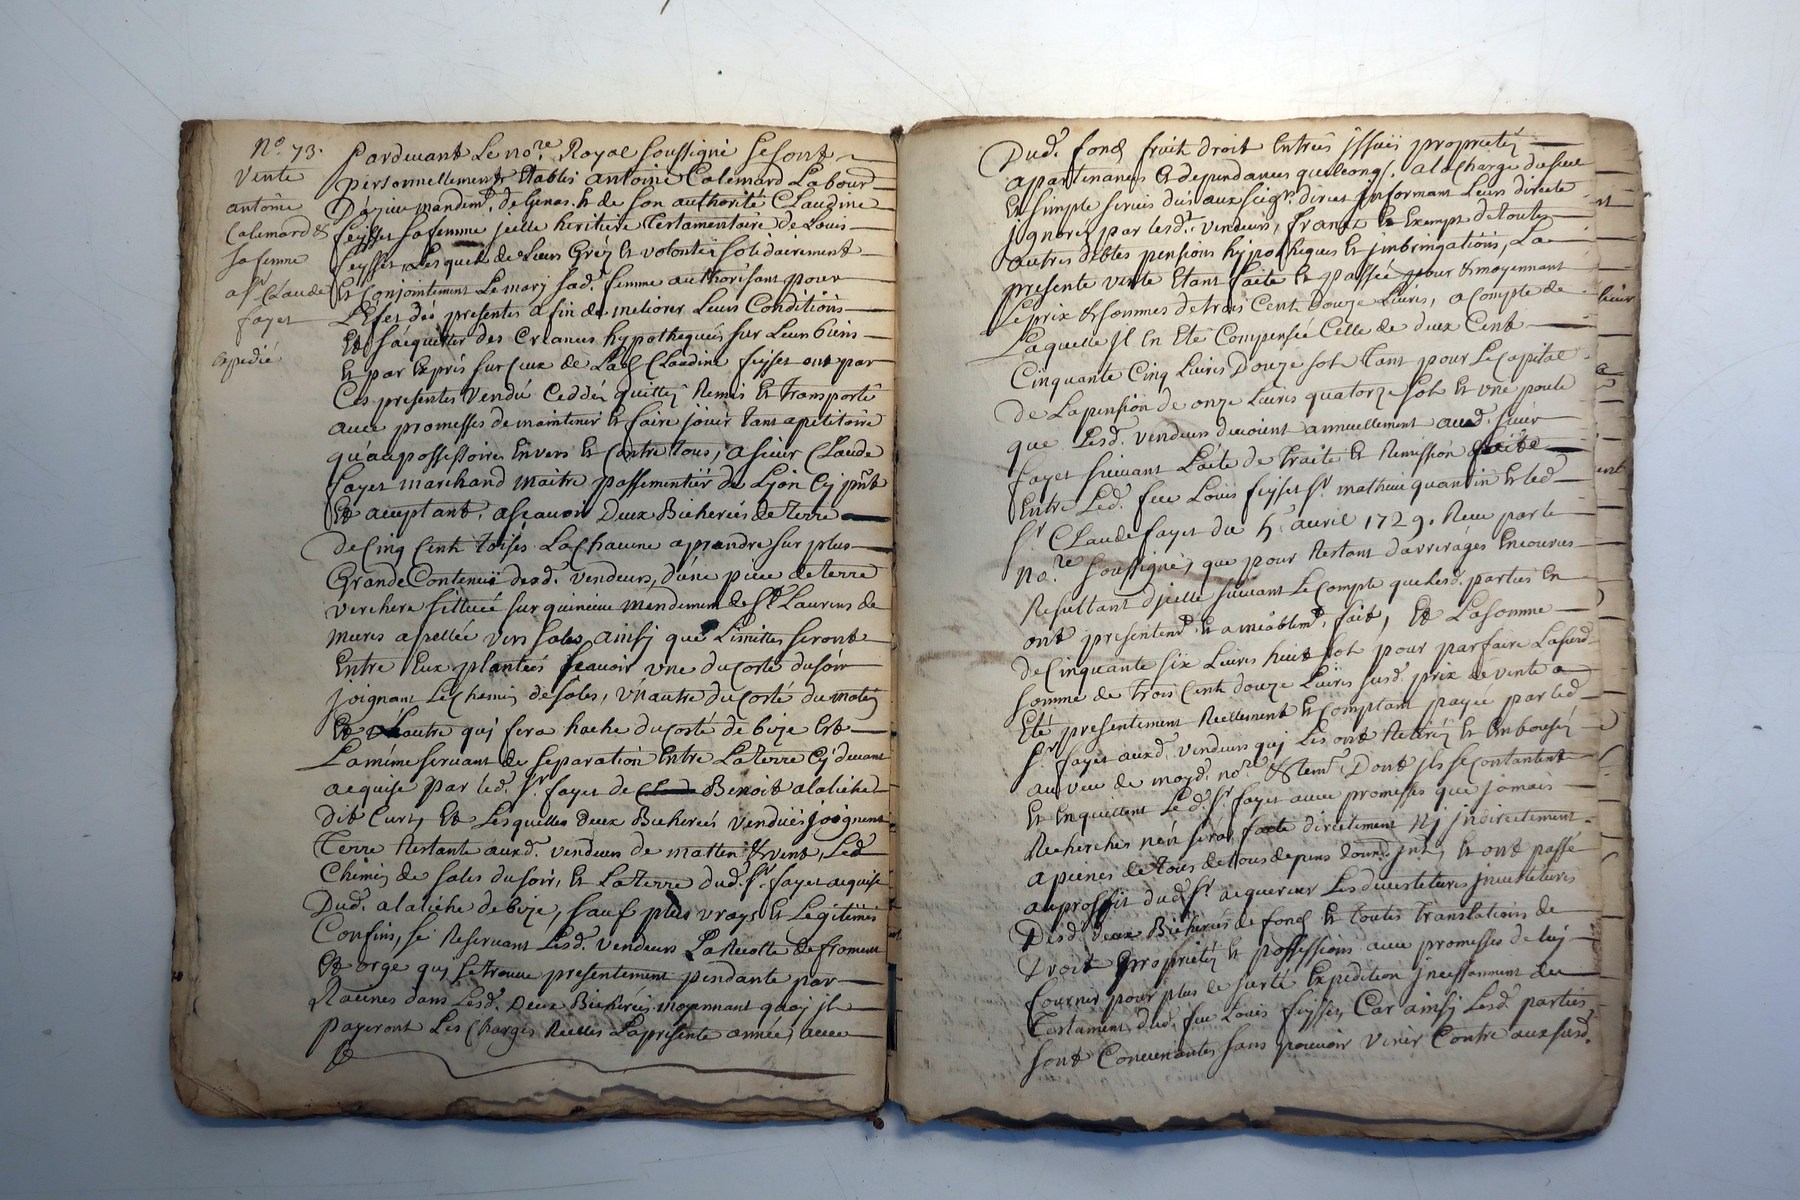 N.º 73.
Vente
antoine
Calemard &
sa femme
a Sr. Claude
fayet
expedié
Pardevant Le no.re Royal soussigné se sont
personnellement Etablis antoine Calemard Labour.
D'azieu mandem.t de Genas & de son authorité Claudine
feysset sa femme jcelle heritiere Testamentaire de Louis
feysset, Lesquels de Leurs Gréz Et volontéz solidairement
Et Conjointement Le mary sad. femme authorisant pour
L'Efet des presentes a fin de meliorer Leurs Conditions
Et s'acquitter des Creances hypothequéés sur Leurs biens
Et par Exprés sur Ceux de Lad. Claudine feysset ont par
Ces presentes Vendu Ceddéz quittéz Remis Et transporté
avec promesses de maintenir Et faire jouir tant a petitoire
qu'au possessoires Envers Et Contre tous, a sieur Claude
fayet marchand maitre passementier de Lyon Cy pnt
Et acceptant, a scavoir Deux Bicherées de terre
de Cinq Cents toises La Chacune a prendre sur plus
Grande Contenüe desd. vendeurs, d'une piece de terre
verchere sittuéé sur quincieu mandement de St. Laurens de
mures appellée vers soles, ainsy que Limittes seront
Entre Eux plantéés scavoir une du Costé du soir
joignant Le Chemin de soles, L'autre du Costé du matin
Et L'autre quj sera hache du costé de bize Et
La méme servant de separation Entre La terre Cy devant
acquise par led. Sr. fayet de Benoit alaliche
dit Curt, Et Lesquelles deux Bicherées vendües joignent
Terre Restante auxd. vendeurs de matin & vent, Led.
Chemin de soles du soir, Et La terre dud. Sr. fayet acquise
Dud. alaliche de bize, sauf plus vrays Et Legitimes
Confins, se Reservant Lesd. vendeurs La Recolte de froment
Et orge quj se trouve presentement pendante par
Racines dans Lesd. Deux Bicherées moyennant quoy jls
payeront Les Charges Réelles La présente année, avec
Dud. fond fruits droit Entrées jssües proprietéz
apartenances & dependances quelconq. a la charge du seul
Et simple servis dûs aux Seigr. directs jnformant Leurs directe
jgnorez par lesd. vendeurs, franct Et Exempt de toutes
autres debtes pensions hypotheques Et jmbringations, La
presente vente Etant faite Et passée pour & moyennant
Le prix & sommes de trois Cent douze Livres, a Compte de
Laquelle jl En Eté Compensée Celle de deux Cent
Cinquante Cinq Livres Douze sols Tant pour Le Capital
de La pension de onze Livres quatorze sols Et une poule
que Lesd. vendeurs devoient annuellement aud. sieur
fayet suivant L'acte de traité Et Remission faite
Entre Led. feu Louis feysset Sr. mathieu quantin Et led.
Sr. Claude fayet du 5.e avril 1729. Receu par le
no.re soussigné, que pour Restant d'arrerages Encourus
Resultant d'jcelle suivant Le Compte que Lesd. parties En
ont presentem.t Et amiablem.t fait, Et La somme
de Cinquante six Livres huit sols pour parfaire La susd.
somme de trois Cents douze Livres susd. prix de vente a
Eté presentement Réellement Et Comptant payée par led.
Sr. fayet auxd. vendeurs quj Les ont Retiréz Et Emboursés
au veu de moyd. no.re & tem.s Dont jls se Contantent
Et En quittent Led. Sr. fayet avec promesses que jamais
Recherches n'en sera faite directement Nj jndirectement
a peines de tous depens dom. jnt., Et ont passé
au proffit dud. Sr. acquereur Les devestitures jnvestitures
Desd. deux Bicherées de fond Et toutes translations de
Droits proprietéz Et possessions avec promesses de luy
fournir pour plus de surté Expedition jncessamment du
Testament dud. feu Louis feysset, Car ainsy Lesd. parties
sont Convenantes sans pouvoir Venir Contre aux susd.